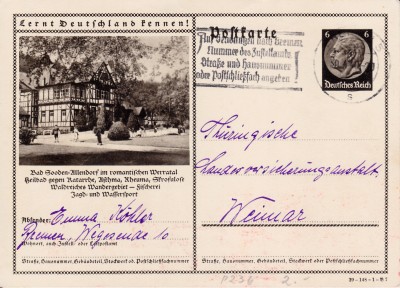 Lernt Deutschland kennen!
Bad Sooden-Allendorf im romantischen Werratal
Heilbad gegen Katarrhe, Asthma, Rheuma, Skrofulose
Waldreiches Wandergebiet – Fischerei
Jagd- und Wassersport
Absender: Emma Köhler
Bremen, Wegesende 10
Wohnort, auch Zustell- oder Leitpostamt
Straße, Hausnummer, Gebäudeteil, Stockwerk od. Postschließfachnummer
Postkarte
Auf Sendungen nach Bremen
Nummer des Zustellamts
Straße und Hausnummer
oder Postschließfach angeben
6 6
Deutsches Reich
Thüringische
Landesversicherungsanstalt
Weimar
Straße, Hausnummer, Gebäudeteil, Stockwerk oder Postschließfachnummer
P236 2.-